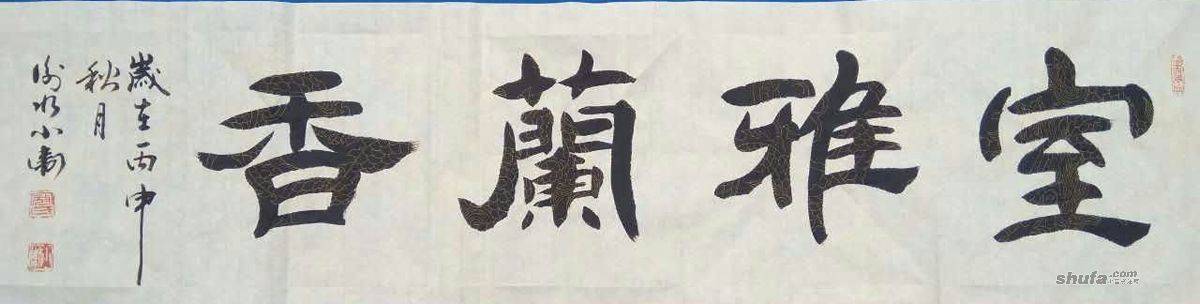 室雅蘭香
歲在丙申
秋月
小衛
shufa.com